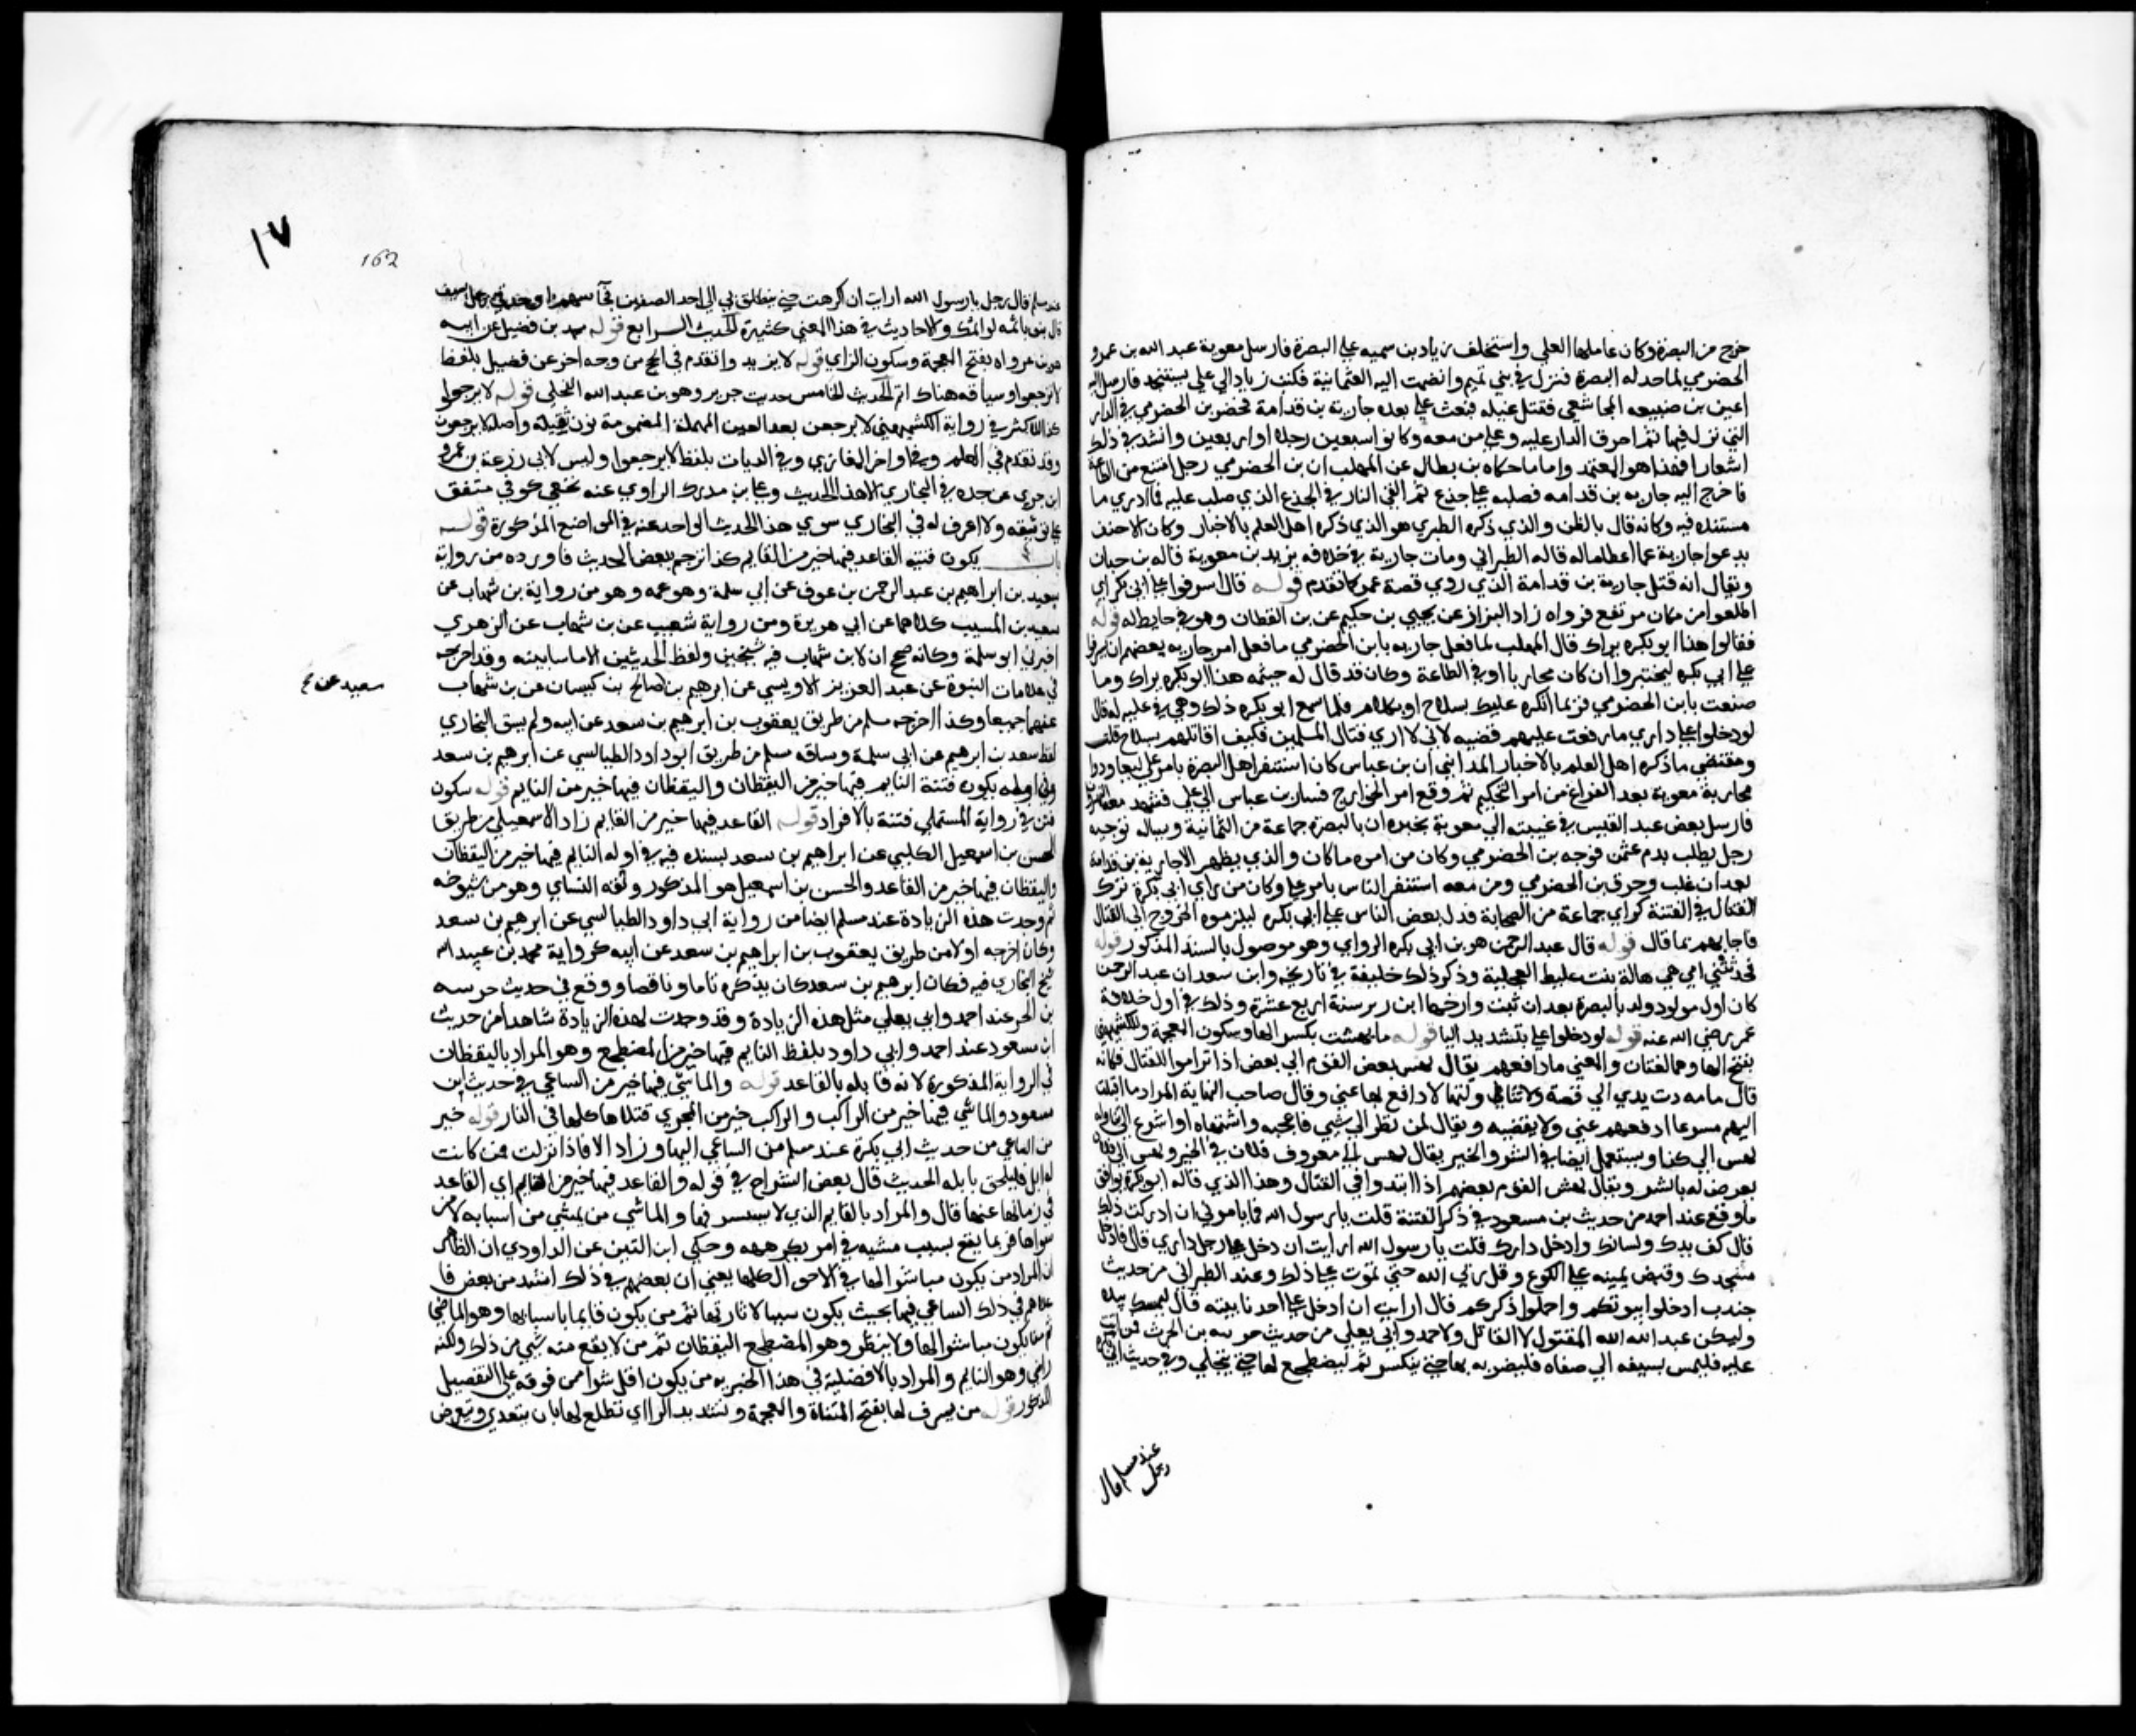 خرج من البصرة وكان عاملها لعلي واستخلف زياد بن سميه علي البصرة فارسل معوية عبد الله بن عمرو
الحضرمي لياخد له البصرة فنزل في بني تميم وانضمت اليه العثمانية فكتب زياد الي علي يستنجد فارسل اليه
اعين بن ضبيعه المجاشعي فقتل غيله فبعث علي بعده جارية بن قدامة فحضر بن الحضرمي في الدار
التي نزل فيها ثم احرق الدار عليه وعلي من معه وكانوا سبعين رجلا او اربعين وانشد في ذلك
اشعارا فهذا هو المعتمد واما ما حكاه بن بطال عن المهلب ان بن الحضرمي رجل امتنع من الطاعة
فاخرج اليه جاريه بن قدامه فصلبه علي جذع ثم القي النار في الجذع الذي صلب عليه فما ادري ما
مستنده فيه وكانه قال بالظن والذي ذكره الطبري هو الذي ذكره اهل العلم بالاخبار وكان الاحنف
يدعوا جارية عما اعظاما له قاله الطبراني ومات جارية في خلافه يزيد بن معوية قاله بن حبان
ويقال انه قتل جارية بن قدامة الذي روي قصة عمر كما تقدم قوله قال اسرفوا علي ابي بكر اي
اطلعوا من مكان مرتفع فرواه زاد البزاز عن يحيي بن حكيم عن بن القطان وهو في حايط له قوله
فقالوا هذا ابو بكره يراك قال المهلب لما فعل جاريه بابن الحضرمي ما فعل امر جاريه بعضهم ان يشرفوا
علي ابي بكره ليختبروا ان كان محاربا او في الطاعة وكان قد قال له خيثمه هذا ابو بكره يراك وما
صنعت بابن الحضرمي فربما انكره عليك بسلاح او بكلام فلما سمع ابو بكره ذلك وهي في عليه له قال
لو دخلوا علي داري ما رفعت عليهم قضيبه لاني لا اري قتال المسلمين فكيف اقاتلهم بسلاح قلت
ومقتضي ما ذكره اهل العلم بالاخبار المدايني ان بن عباس كان استنفر اهل البصرة بامر علي ليعاودوا
محاربة معوية بعد الفراغ من امر التحكيم ثم وقع امر الخوارج فسار بن عباس الي علي فشهد معه النهروان
فارسل بعض عبد القيس في غيبته الي معوية يخبره ان بالبصرة جماعة من العثمانية ويساله توجيه
رجل يطلب بدم عثمن فوجه بن الحضرمي وكان من امره ما كان والذي يظهر الا جارية بن قدامة
بعد ان غلب وحرق بن الحضرمي ومن معه استنفر الناس بامر علي وكان من راي ابي بكرة ترك
القتال في الفتنة كراي جماعة من الصحابة فدل بعض الناس علي ابي بكره ليلزموه الخروج الي القتال
فاجابهم بما قال قوله قال عبد الرحمن هو بن ابي بكره الراوي وهو موصول بالسند المذكور قوله
فحدثتني امي هي هالة بنت غليظ العجلية وذكر ذلك خليفة في تاريخه وابن سعد ان عبد الرحمن
كان اول مولود ولد بالبصرة بعد ان بنيت وارخها ابن زبر سنة اربع عشرة وذلك في اول خلافة
عمر رضي الله عنه قوله لو دخلوا علي بتشديد اليا قوله ما بهشت بكسر الها وسكون المعجمة وللكشميهني
بفتح الها وهما لغتان والمعني ما دافعهم يقال بهش بعض القوم الي بعض اذا تراموا للقتال فكانه
قال ما مددت يدي الي قصبة ولا تناولتها لادافع بها عني وقال صاحب النهاية المراد ما اقبلت
اليهم مسرعا ادفعهم عني ولا بقضيبه ويقال لمن نظر الي شيي فاعجبه واشتهاه او اسرع الي تناوله
بهش الي كذا ويستعمل ايضا في الشر والخير يقال بهش الي معروف فلان في الخير وبهش الي فلان
تعرض له بالشر ويقال بهش القوم بعضهم اذا ابتدوا في القتال وهذا الذي قاله ابو بكرة يوافق
ما وقع عند احمد من حديث بن مسعود في ذكر الفتنة قلت يا رسول الله فما يامرني ان ادركت ذلك
قال كف يدك ولسانك وادخل دارك قلت يا رسول الله ارايت ان دخل علي رجل داري قال فادخل
مسجدك وقبض بيمينه علي الكوع وقل ربي الله حتي تموت علي ذلك وعند الطبراني من حديث
جندب ادخلوا بيوتكم واحملوا ذكركم قال ارايت ان ادخل علي احدنا بيته قال ليمسك بيده
وليكن عبد الله المقتول لا القاتل ولاحمد وابي يعلي من حديث خرشه بن الحرث فمن اتت
عليه فليمش بسيفه الي صفاه فليضربه بها حتي ينكسر ثم ليضطجع لها حتي ينجلي وفي حديث ابي بكرة
عند مسلم قال
رجل
١٧
162
عند مسلم قال رجل يا رسول الله ارايت ان اكرهت حتي ينطلق بي الي احد الصفين فجا سهم او ضربني رجل بسيف
قال يبوء باثمه واثمك والاحاديث في هذا المعني كثيرة الحديث الرابع قوله محمد بن فضيل عن ابيه
هو بن غزوان بفتح المعجمة وسكون الزاي قوله لا يرتد وتقدم في الحج من وجه اخر عن فضيل بلفظ
لا ترجعوا وسياقه هناك اتم الحديث الخامس حديث جرير وهو بن عبد الله البجلي قوله لا ترجعوا
كذا للاكثر في رواية الكشميهني لا يرجعن بعد العين المهملة المضمومة نون ثقيلة واصله لا يرجعون
وقد تقدم في العلم وفي اواخر المغازي وفي الديات بلفظ لا يرجعوا وليس لابي زرعة بن عمرو
ابن جرير عن جده في البخاري الا هذا الحديث وعلي بن مدرك الراوي عنه نخعي كوفي متفق
علي توثيقه ولا اعرف له في البخاري سوي هذا الحديث الواحد عنه في المواضع المذكورة قوله
باب يكون فتنه القاعد فيها خير من القايم كذا ترجم ببعض الحديث فاورده من رواية
سعيد بن ابراهيم بن عبد الرحمن بن عوف عن ابي سلمة وهو عمه وهو من رواية بن شهاب عن
سعيد بن المسيب كلاهما عن ابي هريرة ومن رواية شعيب عن بن شهاب عن الزهري
اخبرني ابو سلمة وكانه صحح ان لابن شهاب فيه شيخين ولفظ الحديثين الا ما سابينه وقد اخرجه
في علامات النبوة عن عبد العزيز الاويسي عن ابرهيم بن صالح بن كيسان عن بن شهاب
سعيد عن
عنهما جميعا وكذا اخرجه مسلم من طريق يعقوب بن ابرهيم بن سعد عن ابيه ولم يسق البخاري
لفظ سعد بن ابرهيم عن ابي سلمة وساقه مسلم من طريق ابو داود الطيالسي عن ابرهيم بن سعد
وفي اوله تكون فتنة النايم فيها خير من اليقظان واليقظان فيها خير من النايم قوله ستكون
فتن في رواية المستملي فتنة بالافراد قوله القاعد فيها خير من القايم زاد الاسمعيلي من طريق
الحسن بن اسمعيل الكلبي عن ابراهيم بن سعد بسنده فيه في اوله النايم فيها خير من اليقظان
واليقظان فيها خير من القاعد والحسن بن اسمعيل هو المذكور وثقه النساي وهو من شيوخه
ثم وجدت هذه الزيادة عند مسلم ايضا من رواية ابي داود الطيالسي عن ابرهيم بن سعد
وكان اخرجه اولا من طريق يعقوب بن ابراهيم بن سعد عن ابيه كرواية محمد بن عبيد الله
شيخ البخاري فيه فكان ابرهيم بن سعد كان يذكره تاما وناقصا ووقع في حديث خرشه
بن الحر عند احمد وابي يعلي مثل هذه الزيادة وقد وجدت لهذه الزيادة شاهدا من حديث
ابن مسعود عند احمد وابي داود بلفظ النايم فيها خير من المضطجع وهو المراد باليقظان
في الرواية المذكورة لانه قابله بالقاعد قوله والماشي فيها خير من الساعي في حديث ابن
مسعود والماشي فيها خير من الراكب والراكب خير من المجري قتلاها كلها في النار قوله خير
من الساعي من حديث ابي بكرة عند مسلم من الساعي اليها وزاد الا فاذا نزلت فمن كانت
له ابل فليلحق بابله الحديث قال بعض الشراح في قوله والقاعد فيها خير من القايم اي القاعد
في زمانها عنها قال والمراد بالقايم الذي لا يستسر فها والماشي من يمشي من اسبابه لامر
سواها فربما يقع بسبب مشيه في امر يكرهه وحكي ابن التين عن الداودي ان الظاهر
ان المراد من يكون مباشرا لها في الاحوال كلها يعني ان بعضهم في ذلك اشد من بعض فا
علاهم في ذلك الساعي فيها بحيث يكون سببا لاثارتها ثم من يكون قايما باسبابها وهو الماشي
ثم من يكون مباشرا لها ولا ينظر وهو المضطجع اليقظان ثم من لا يقع منه شيي من ذلك ولكنه
راضي وهو النايم والمراد بالافضلية في هذا الخيريه من يكون اقل شرا من فوقه علي التفصيل
المذكور قوله من تشرف لها بفتح المثناة والمعجمة وتشديد الرا اي تطلع لها بان يتصدي ويتعرض